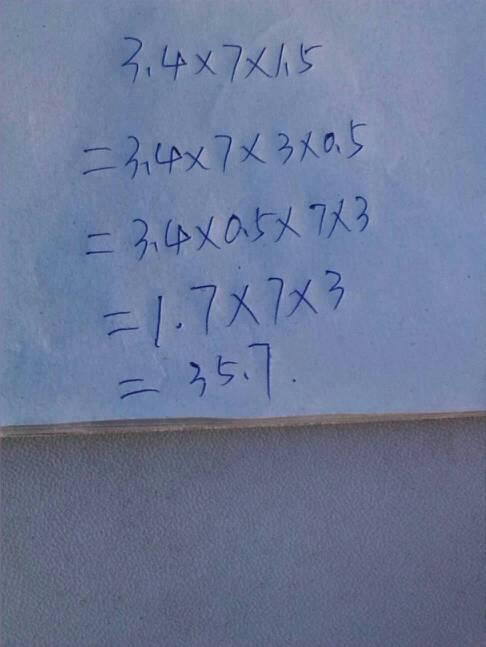 3.4×7×1.5
=3.4×7×3×0.5
=3.4×0.5×7×3
=1.7×7×3
=35.7.